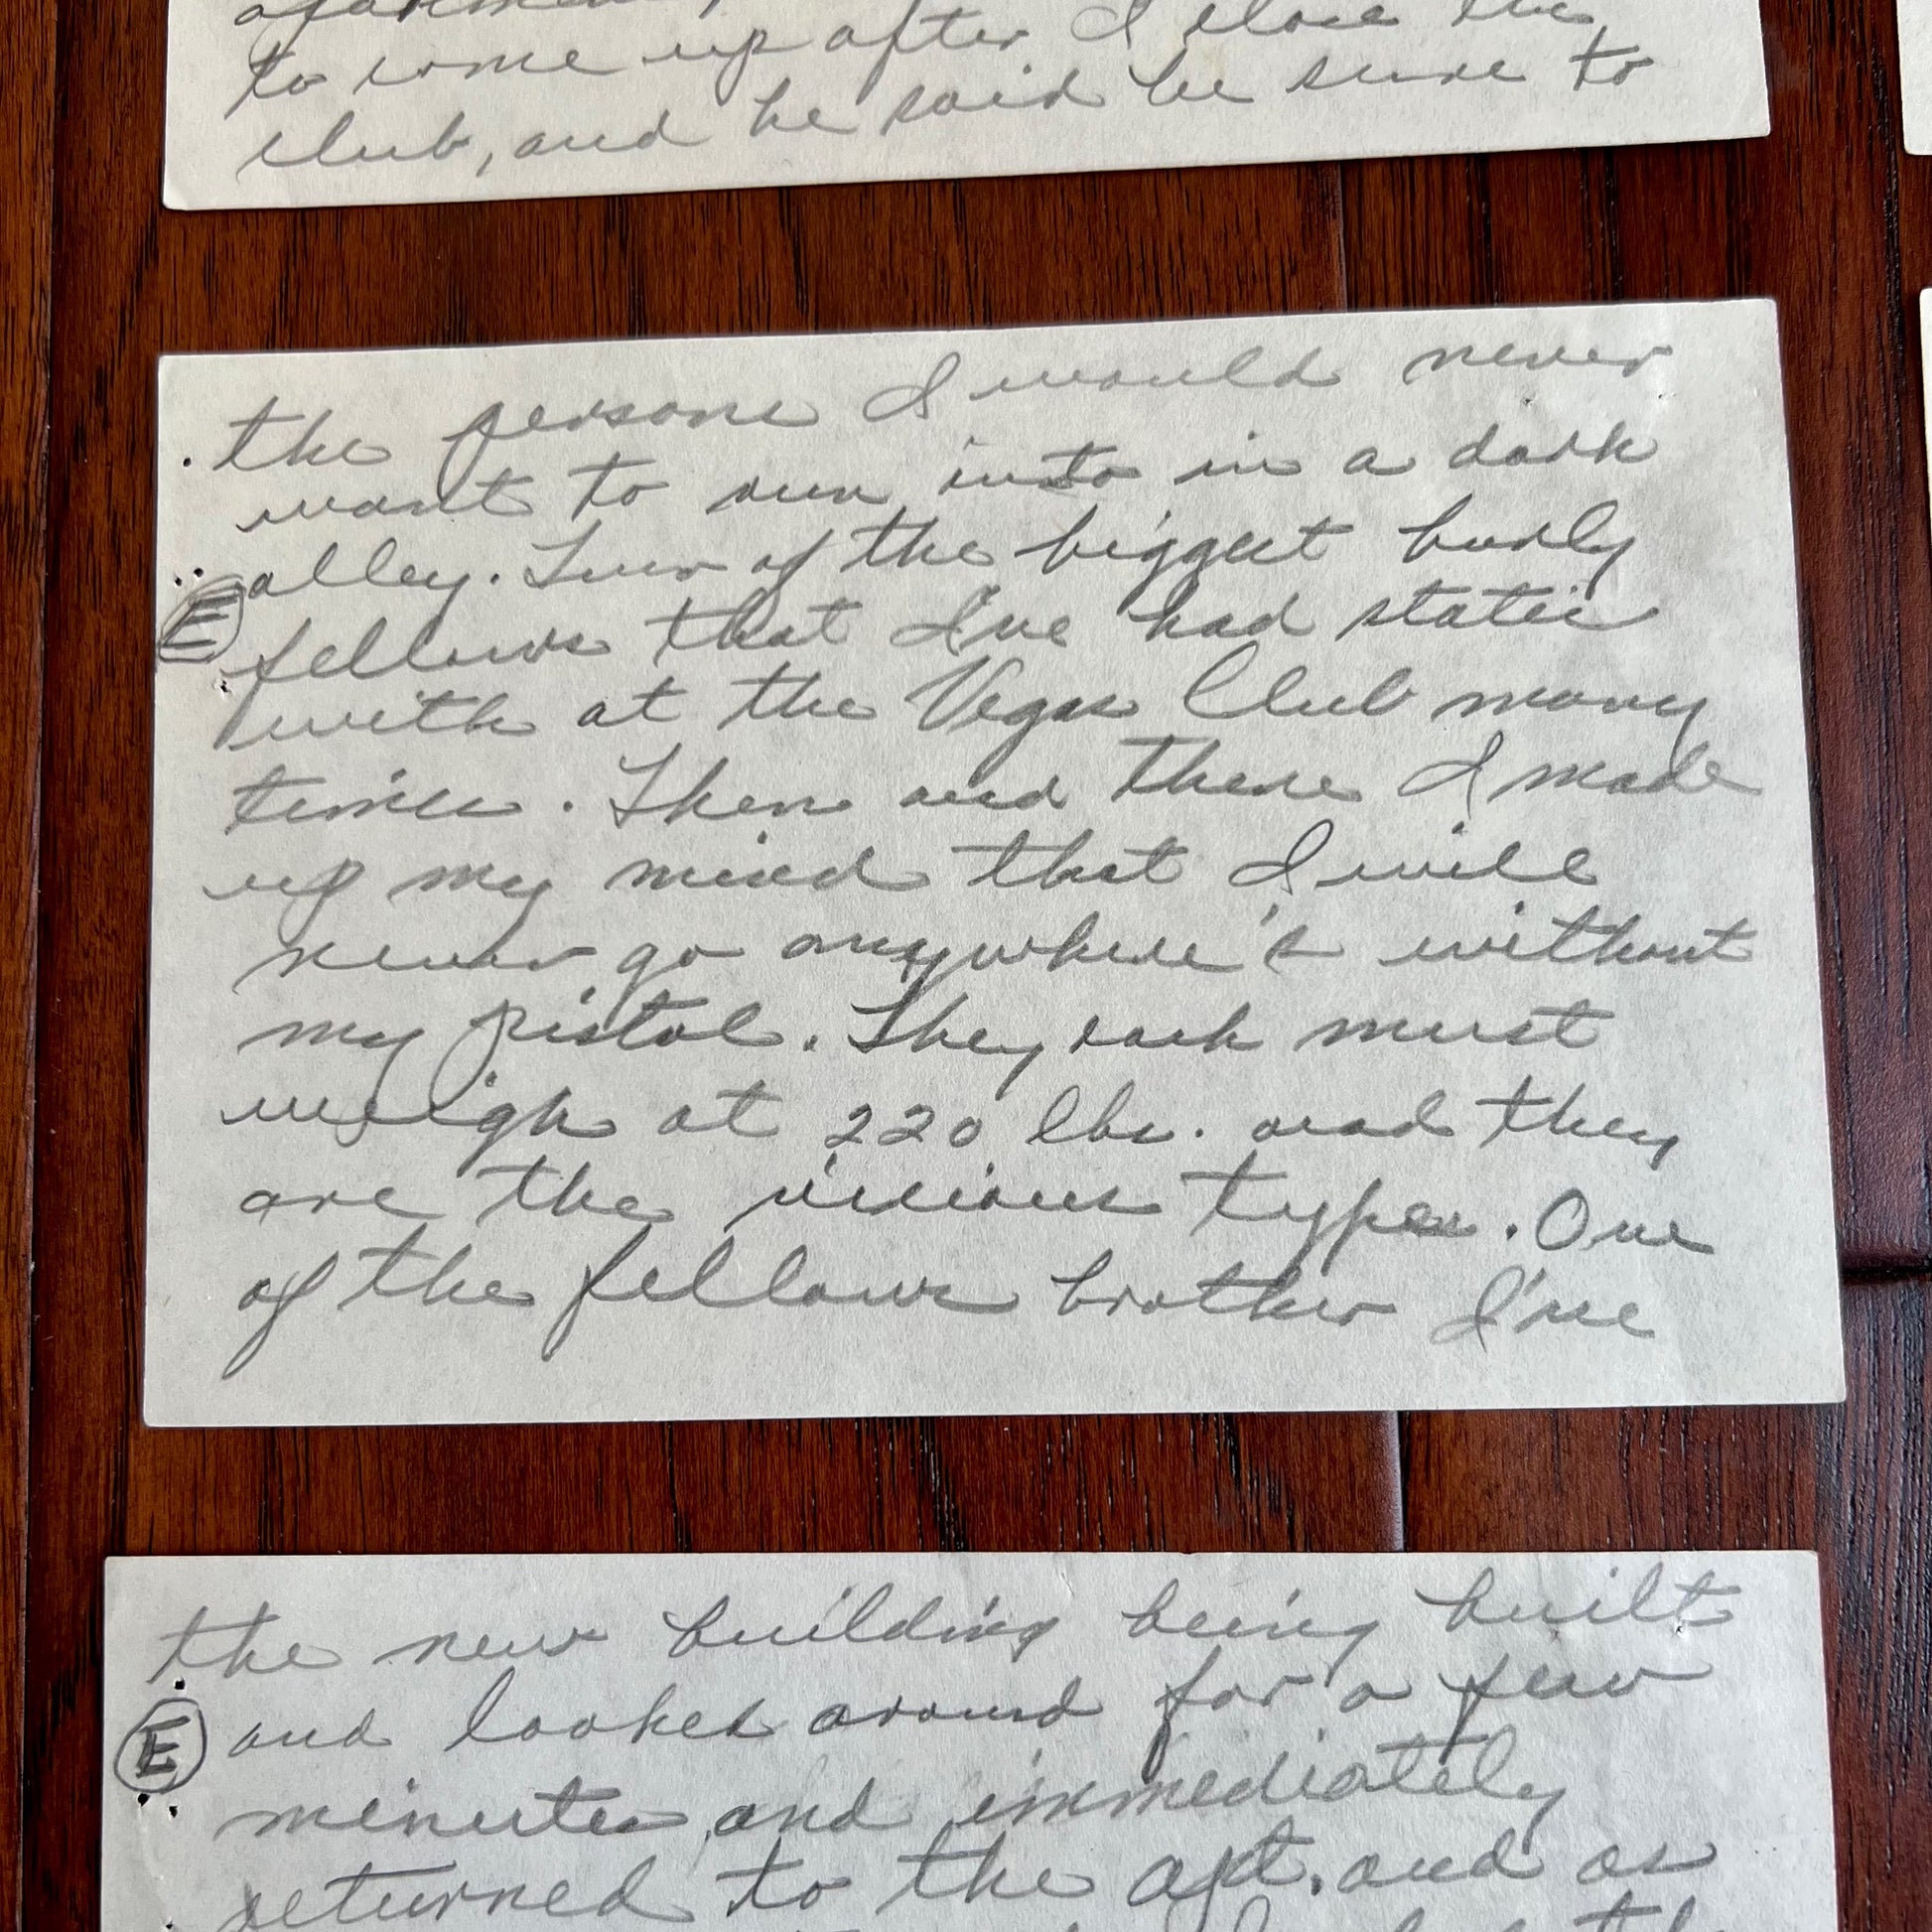 to come up after I close the
club, and he said be sure to
the persons I would never
want to run into in a dark
alley. Two of the biggest burly
E
fellows that I've had static
with at the Vegas Club many
times. Then and there I made
up my mind that I will
never go anywhere's without
my pistol. They each must
weigh at 220 lbs. and they
are the vicious types. One
of the fellows brother I've
the new building being built
E and looked around for a few
minutes and immediately
returned to the apt. and as